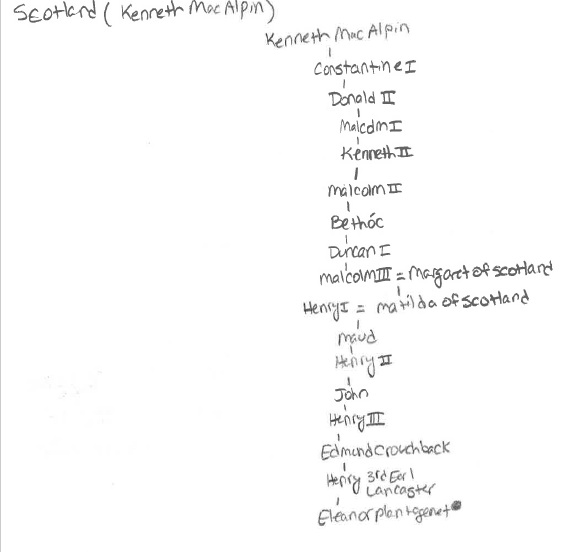 Scotland (Kenneth Mac Alpin)
Kenneth Mac Alpin
Constantine I
Donald II
Malcolm I
Kenneth II
malcolm II
Bethóc
Duncan I
malcolm III = Margaret of scotland
Henry I = matilda of scotland
maud
Henry II
John
Henry III
Edmund Crouchback
Henry 3rd Earl
Lancaster
Eleanor plantagenet